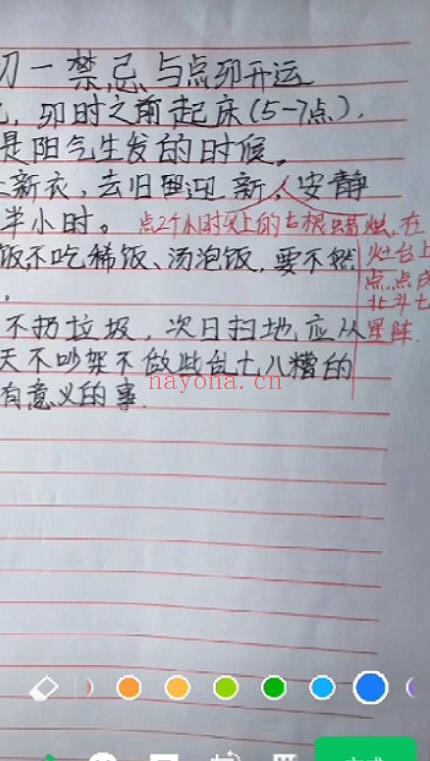 初一禁忌与点卯开运
，卯时之前起床(5-7点)，
是阳气生发的时候。
新衣，去旧迎新，安静
半小时。
点2个小时以上的七根蜡烛，在
灶台上
点，点成
北斗七
星阵
饭，不吃稀饭、汤泡饭，要不然
不扔垃圾，次日扫地应从
天不吵架不做些乱七八糟的
有意义的事.
nayona.cn
完成